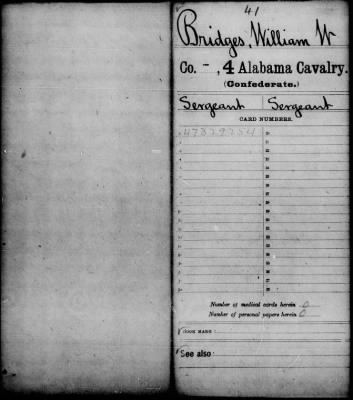 41
Bridges, William W
Co. -, 4 Alabama Cavalry.
(Confederate.)
Sergeant Sergeant
CARD NUMBERS.
Number of medical cards herein 0
Number of personal papers herein 0
BOOK MARK:
See also: